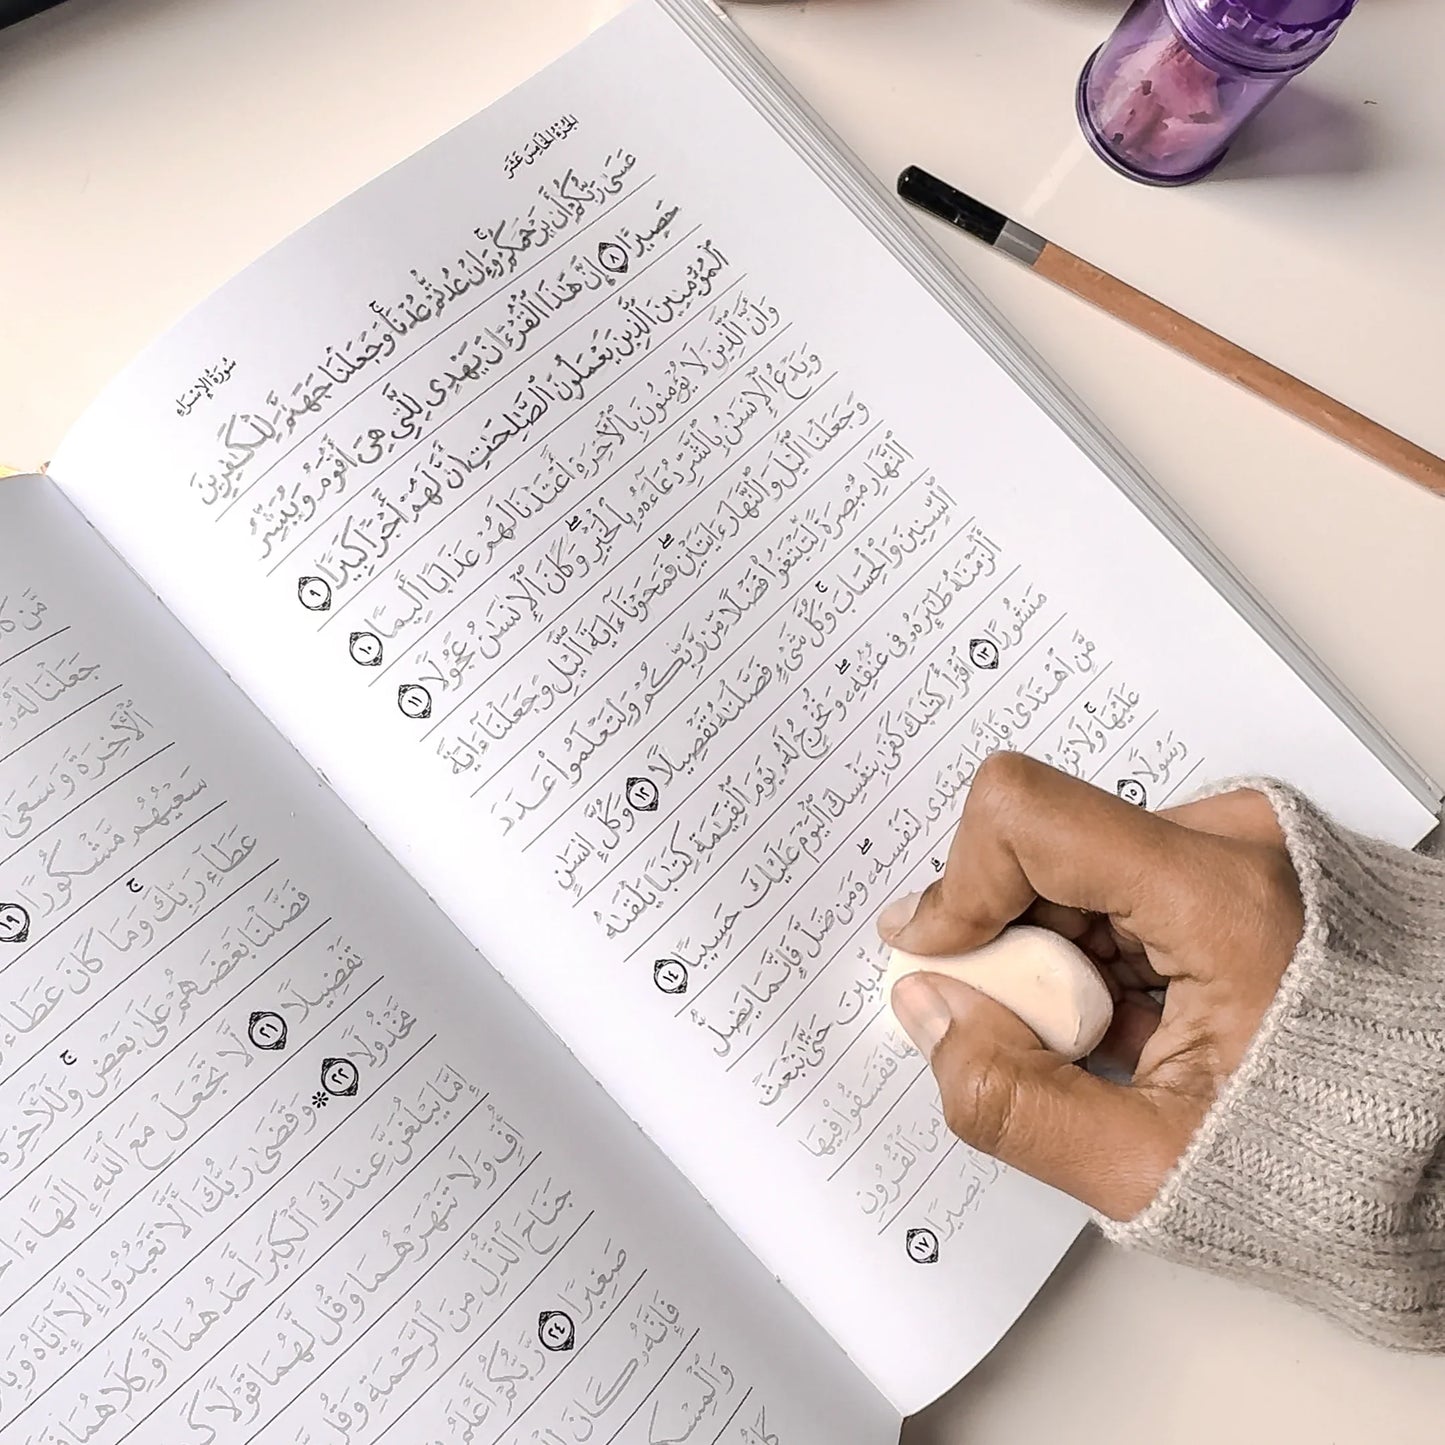 الجُزْءُ الخَامِسَ عَشَرَ
سُورَةُ الإِسْرَاءِ
عَسَىٰ رَبُّكُمْ أَن يَرْحَمَكُمْ ۚ وَإِنْ عُدتُّمْ عُدْنَا ۚ وَجَعَلْنَا جَهَنَّمَ لِلْكَٰفِرِينَ
حَصِيرًا ٨ إِنَّ هَٰذَا ٱلْقُرْءَانَ يَهْدِى لِلَّتِى هِىَ أَقْوَمُ وَيُبَشِّرُ
ٱلْمُؤْمِنِينَ ٱلَّذِينَ يَعْمَلُونَ ٱلصَّٰلِحَٰتِ أَنَّ لَهُمْ أَجْرًا كَبِيرًا ٩
وَأَنَّ ٱلَّذِينَ لَا يُؤْمِنُونَ بِٱلْأَخِرَةِ أَعْتَدْنَا لَهُمْ عَذَابًا أَلِيمًا ١٠
وَيَدْعُ ٱلْإِنسَٰنُ بِٱلشَّرِّ دُعَآءَهُۥ بِٱلْخَيْرِ ۖ وَكَانَ ٱلْإِنسَٰنُ عَجُولًا ١١
وَجَعَلْنَا ٱلَّيْلَ وَٱلنَّهَارَ ءَايَتَيْنِ ۖ فَمَحَوْنَآ ءَايَةَ ٱلَّيْلِ وَجَعَلْنَآ ءَايَةَ
ٱلنَّهَارِ مُبْصِرَةً لِّتَبْتَغُوا۟ فَضْلًا مِّن رَّبِّكُمْ وَلِتَعْلَمُوا۟ عَدَدَ
ٱلسِّنِينَ وَٱلْحِسَابَ ۚ وَكُلَّ شَىْءٍ فَصَّلْنَٰهُ تَفْصِيلًا ١٢ وَكُلَّ إِنسَٰنٍ
أَلْزَمْنَٰهُ طَٰٓئِرَهُۥ فِى عُنُقِهِۦ ۖ وَنُخْرِجُ لَهُۥ يَوْمَ ٱلْقِيَٰمَةِ كِتَٰبًا يَلْقَىٰهُ
مَنشُورًا ١٣ ٱقْرَأْ كِتَٰبَكَ كَفَىٰ بِنَفْسِكَ ٱلْيَوْمَ عَلَيْكَ حَسِيبًا ١٤
مَّنِ ٱهْتَدَىٰ فَإِنَّمَا يَهْتَدِى لِنَفْسِهِۦ ۖ وَمَن ضَلَّ فَإِنَّمَا يَضِلُّ
عَلَيْهَا ۚ وَلَا حَتَّىٰ نَبْعَثَ
رَسُولًا ١٥ فَفَسَقُوا۟ فِيهَا
مِنَ ٱلْقُرُونِ
بَصِيرًا ١٧
مَّن
جَعَلْنَا لَهُۥ
ٱلْأَخِرَةَ وَسَعَىٰ
سَعْيُهُم مَّشْكُورًا ١٩
عَطَآءِ رَبِّكَ ۚ وَمَا كَانَ عَطَآءُ
فَضَّلْنَا بَعْضَهُمْ عَلَىٰ بَعْضٍ ۚ وَلَلْأَخِرَةُ
تَفْضِيلًا ٢١ لَّا تَجْعَلْ مَعَ ٱللَّهِ إِلَٰهًا
مَّخْذُولًا ٢٢ ۞ وَقَضَىٰ رَبُّكَ أَلَّا تَعْبُدُوٓا۟ إِلَّآ إِيَّاهُ
إِمَّا يَبْلُغَنَّ عِندَكَ ٱلْكِبَرَ أَحَدُهُمَآ أَوْ كِلَاهُمَا
أُفٍّ وَلَا تَنْهَرْهُمَا وَقُل لَّهُمَا قَوْلًا
جَنَاحَ ٱلذُّلِّ مِنَ ٱلرَّحْمَةِ وَقُل
صَغِيرًا ٢٤ رَّبُّكُمْ أَعْلَمُ
فَإِنَّهُۥ كَانَ
وَٱلْمِسْكِينَ